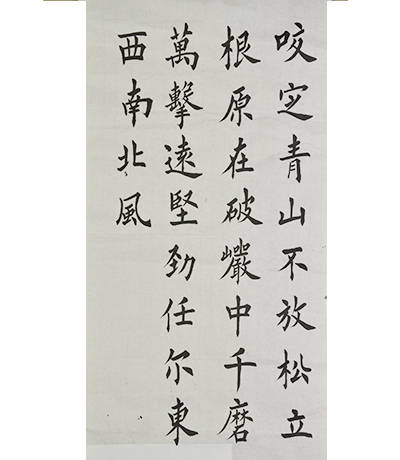 咬定青山不放松立
根原在破巖中千磨
萬擊遠堅劲任尔東
西南北風